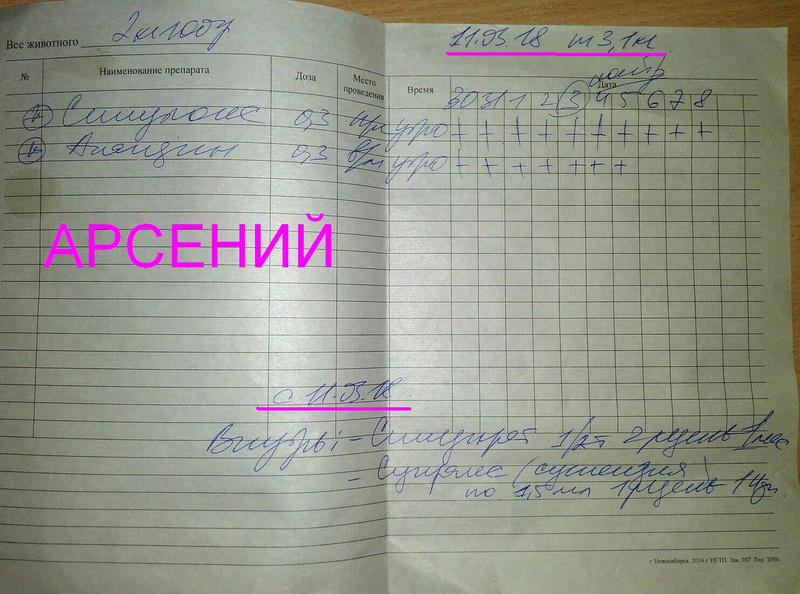 Вес животного 2 кг 100гр
11.03.18 m 3,1 кг
№ Наименование препарата Доза Место проведения Время Дата
30 31 1 2 3 4 5 6 7 8
0,3 п/к утро + + + + + + + + + +
0,3 в/м утро + + + + + + +
АРСЕНИЙ
с 11.03.18
Внутрь: - 1/2т 2 р/день 1 мес
- (суспензия)
по 1,5 мл 1 р/день
г Новосибирск 2014 г НГТП Зак. 507 Тир. 2000.